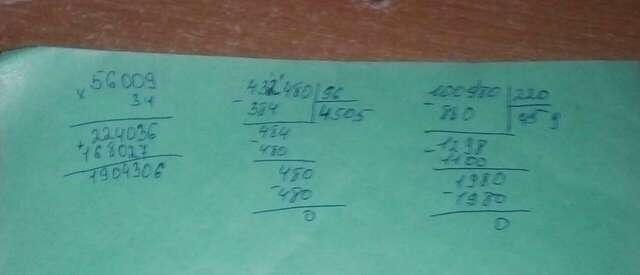 56009
× 34
224036
+ 168027
1904306
- 432480 | 96
384 | 4505
- 484
480
480
- 480
0
- 100980 | 220
880 | 459
- 1298
1100
1980
- 1980
0